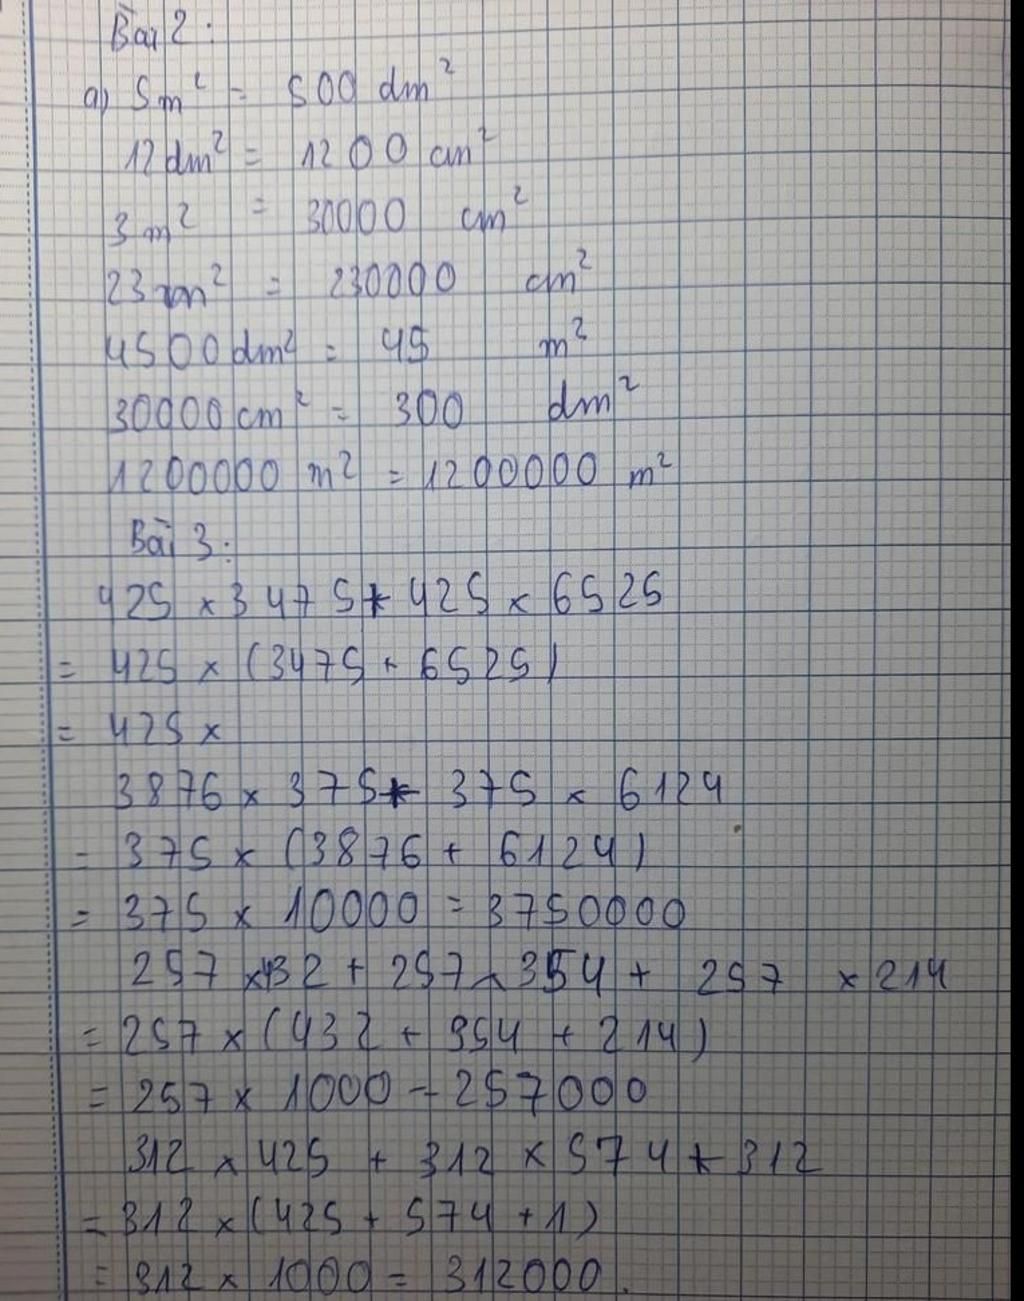 Bài 2:
a) 5m² = 500 dm²
12dm² = 1200 cm²
3m² = 30000 cm²
23m² = 230000 cm²
4500dm² = 45 m²
30000cm² = 300 dm²
1200000 m² = 1200000 m²
Bài 3:
425 × 3475 + 425 × 6525
= 425 × (3475 + 6525)
= 425 ×
3876 × 375 + 375 × 6124
= 375 × (3876 + 6124)
= 375 × 10000 = 3750000
257 × 432 + 257 × 354 + 257 × 214
= 257 × (432 + 354 + 214)
= 257 × 1000 = 257000
312 × 425 + 312 × 574 + 312
= 312 × (425 + 574 + 1)
= 312 × 1000 = 312000.